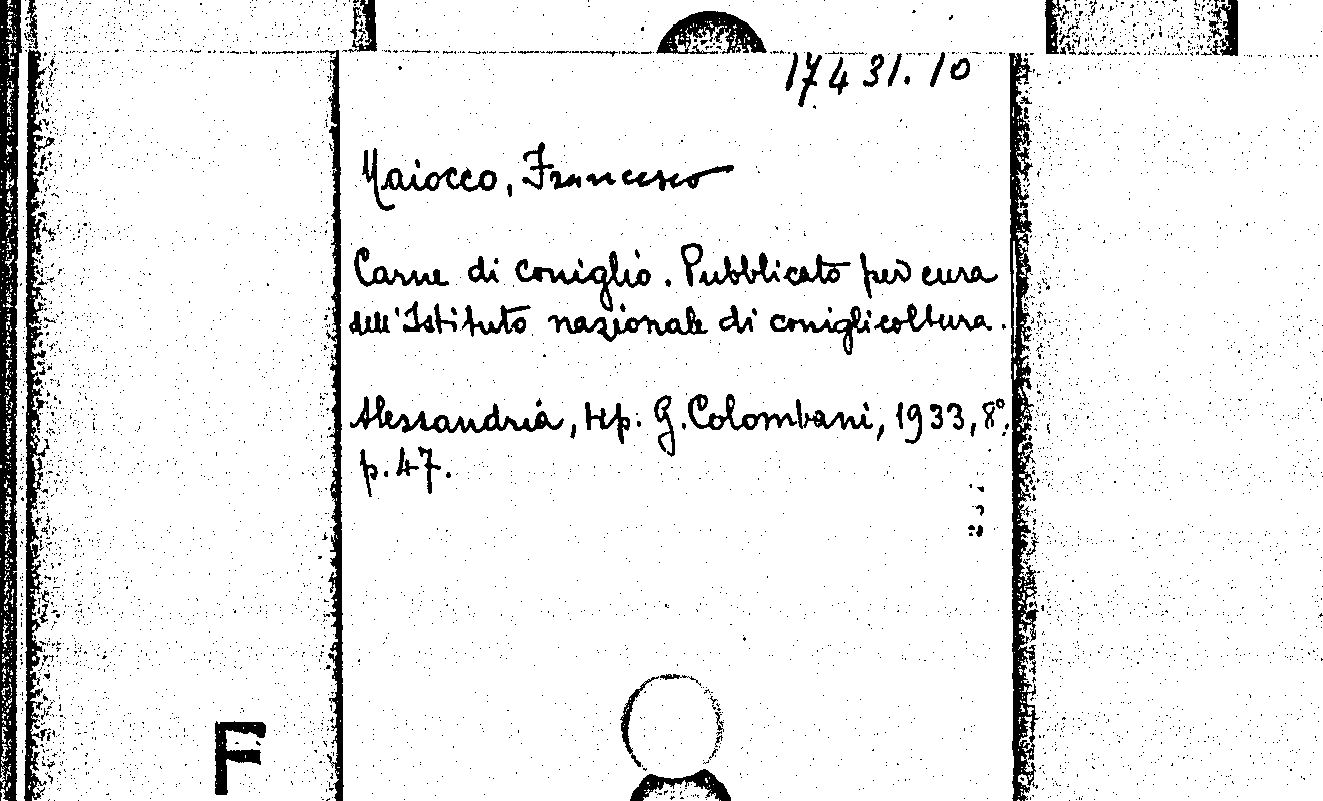 17431.10
Maiocco, Francesco
Carne di coniglio. Pubblicato per cura
dell'Istituto nazionale di coniglicoltura.
Alessandria, tip. G. Colombani, 1933, 8°,
p. 47.
F